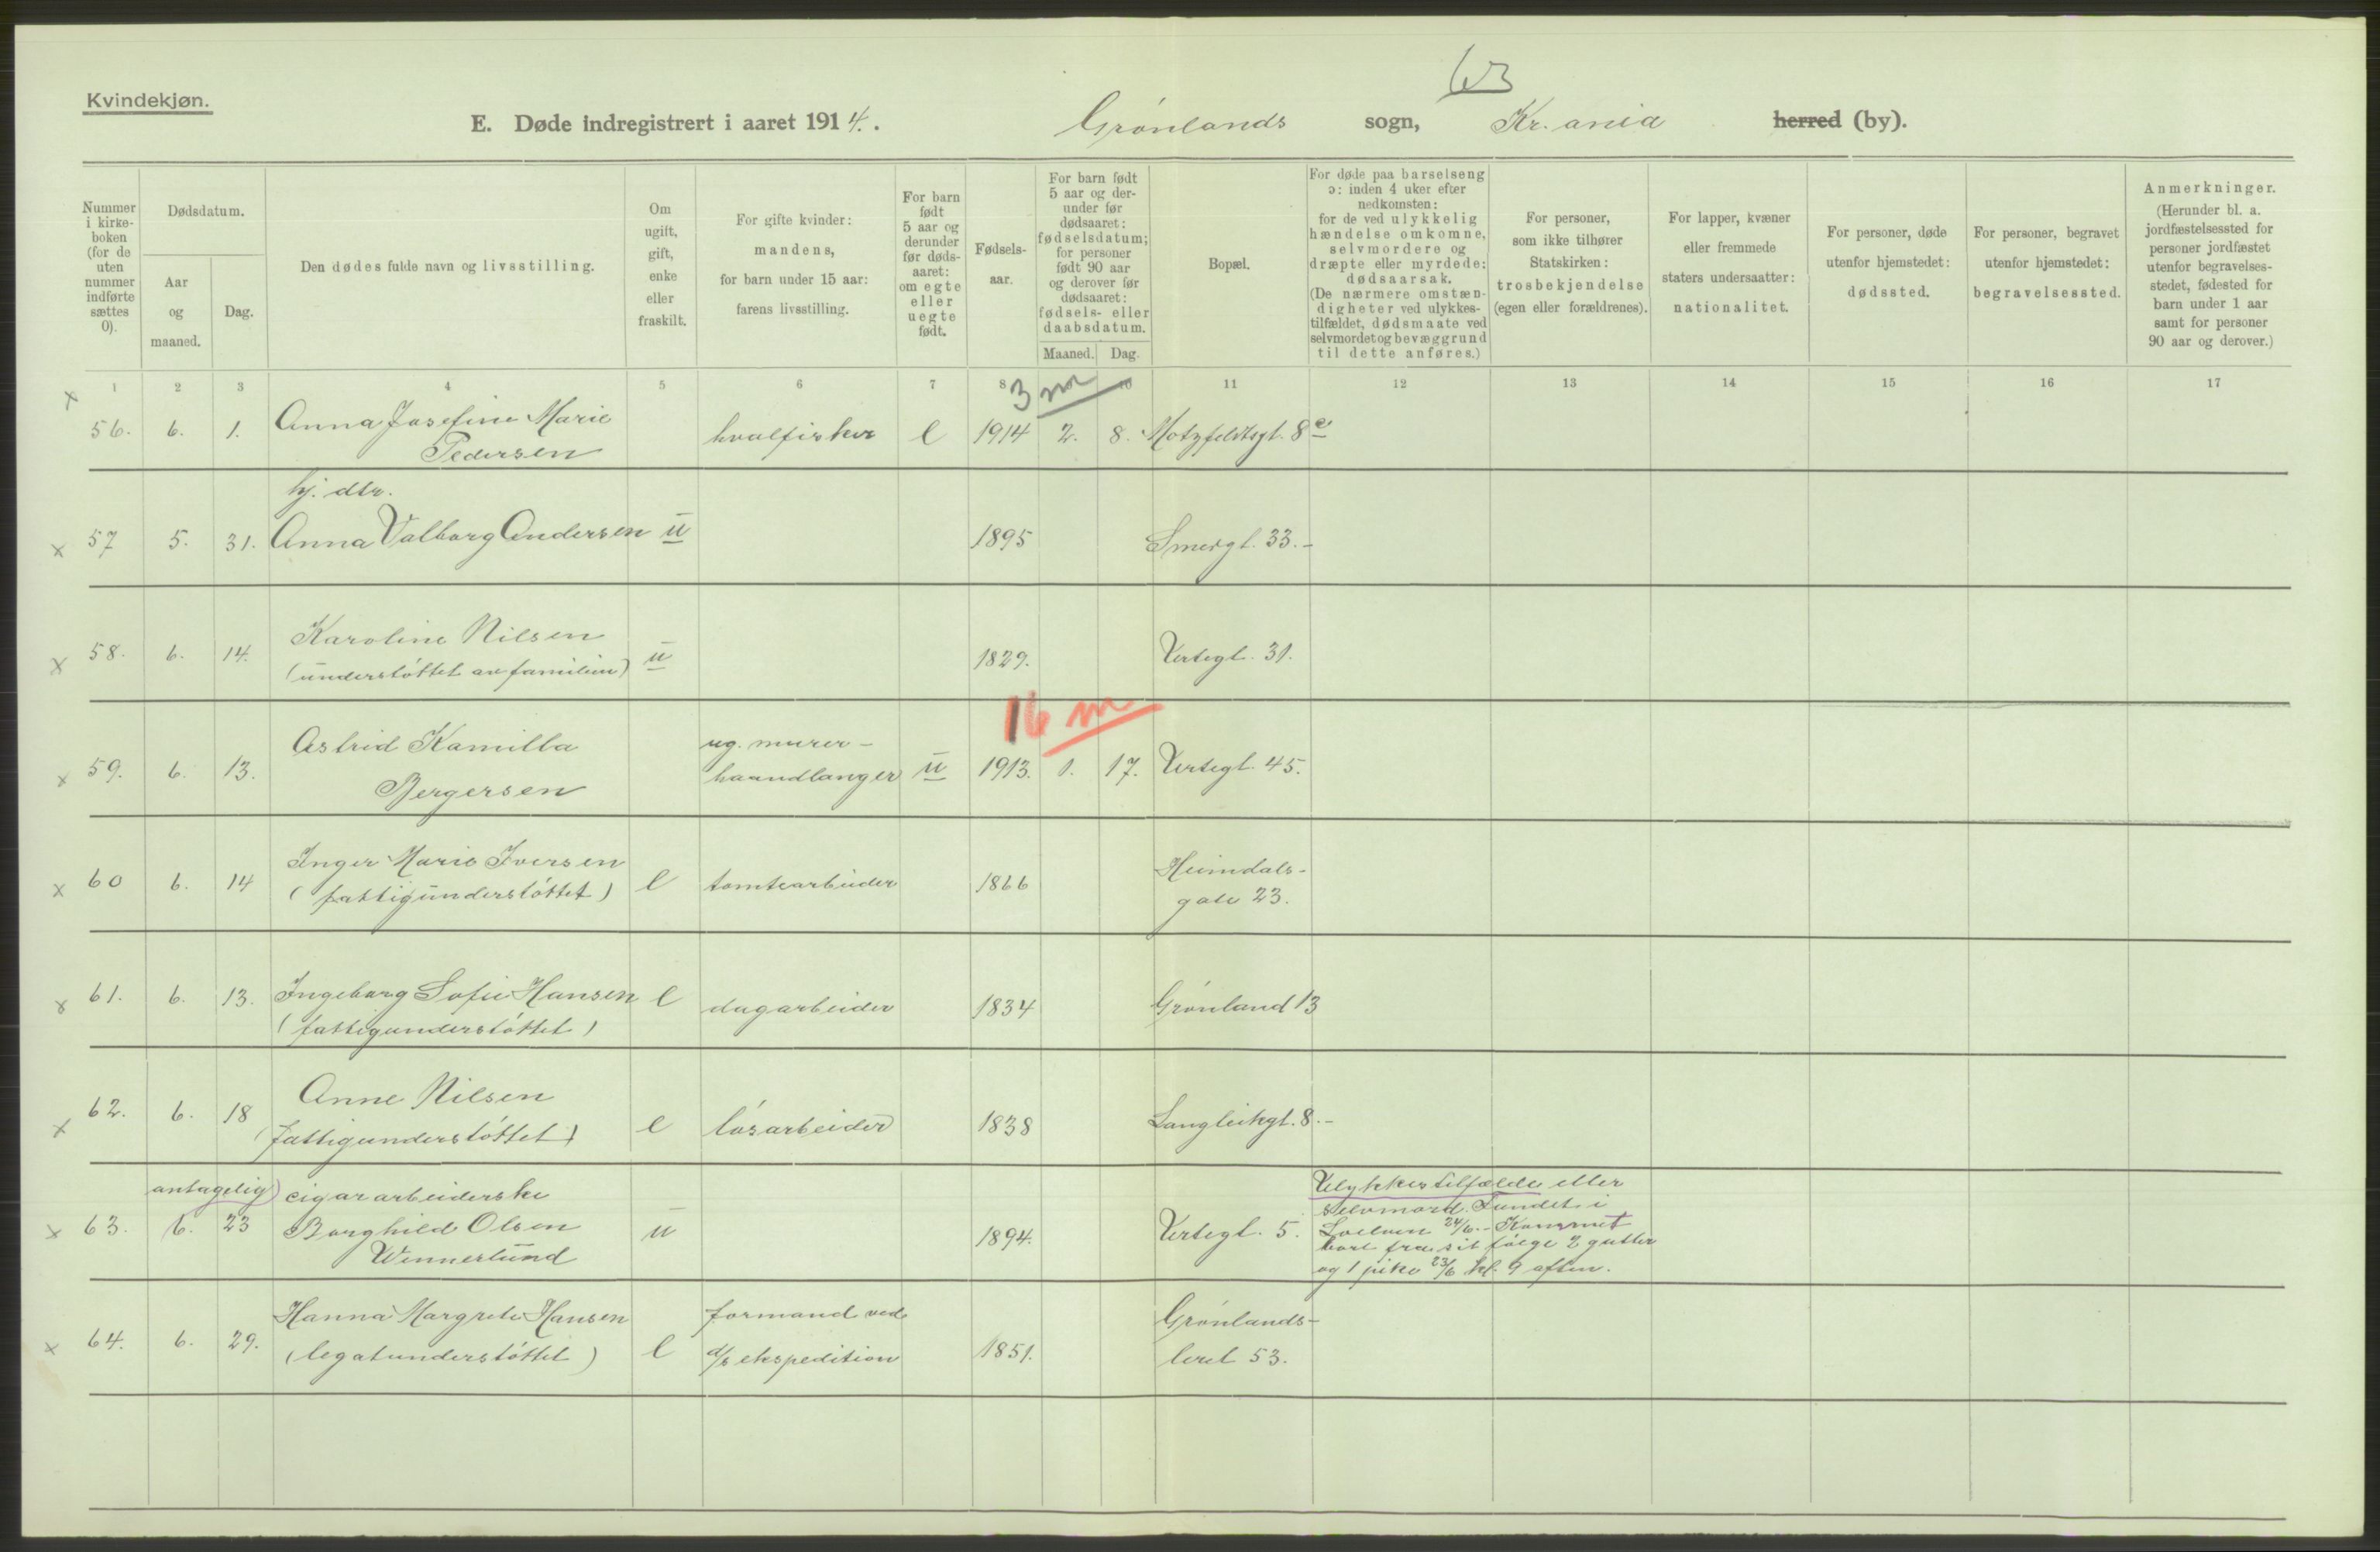 63
Kvindekjøn.
E. Døde indregistrert i aaret 1914. Grønlands sogn, Kr.ania herred (by).
Nummer i kirke-boken (for de uten nummer indførte sættes 0).
Dødsdatum.
Aar og maaned.
Dag.
Den dødes fulde navn og livsstilling.
Om ugift, gift, enke eller fraskilt.
For gifte kvinder: mandens, for barn under 15 aar: farens livsstilling.
For barn født 5 aar og derunder før døds-aaret: om egte eller uegte født.
Fødsels-aar.
For barn født 5 aar og der-under før dødsaaret: fødselsdatum; for personer født 90 aar og derover før dødsaaret: fødsels- eller daabsdatum.
Maaned. Dag.
Bopæl.
For døde paa barselseng ɔ: inden 4 uker efter nedkomsten: for de ved ulykkelig hændelse omkomne, selvmordere og dræpte eller myrdede: dødsaarsak. (De nærmere omstæn-digheter ved ulykkes-tilfældet, dødsmaate ved selvmordet og bevæggrund til dette anføres.)
For personer, som ikke tilhører Statskirken: trosbekjendelse (egen eller forældrenes).
For lapper, kvæner eller fremmede staters undersaatter: nationalitet.
For personer, døde utenfor hjemstedet: dødssted.
For personer, begravet utenfor hjemstedet: begravelsessted.
Anmerkninger. (Herunder bl. a. jordfæstelsessted for personer jordfæstet utenfor begravelses-stedet, fødested for barn under 1 aar samt for personer 90 aar og derover.)
1 2 3 4 5 6 7 8 10 11 12 13 14 15 16 17
3 m
x 56. 6. 1. Anna Josefine Marie Pedersen hvalfisker e 1914 2. 8. Motzfeldtsgt. 8 e
hj. dtr.
x 57 5. 31. Anna Valborg Andersen u 1895 Smedgt. 33.-
x 58. 6. 14. Karoline Nilsen u 1829. Urtegt. 31.
(understøttet av familien)
16 m
x 59. 6. 13. Astrid Kamilla Bergersen ug. murer-haandlanger u 1913. 1. 17. Urtegt. 45.
x 60 6. 14 Inger Marie Iversen e tomtearbeider 1866 Heimdals-gate 23.
(fattigunderstøttet)
x 61. 6. 13. Ingeborg Sofie Hansen e dagarbeider 1834 Grønland 13
(fattigunderstøttet)
x 62. 6. 18 Anne Nilsen e løsarbeider 1838 Langleikgt. 8.-
(fattigunderstøttet)
antagelig cigararbeiderske
x 63. 6. 23 Borghild Olsen Wennerlund u 1894. Urtegt. 5.
Ulykkestilfælde eller
selvmord. Fundet i
Loelven 24/6.- Kommet
bort fra sit følge 2 gutter
og 1 pike 23/6 kl. 9 aften.
x 64. 6. 29. Hanna Margrete Hansen e formand ved d/s ekspedition 1851. Grønlands-leret 53.
(legatunderstøttet)